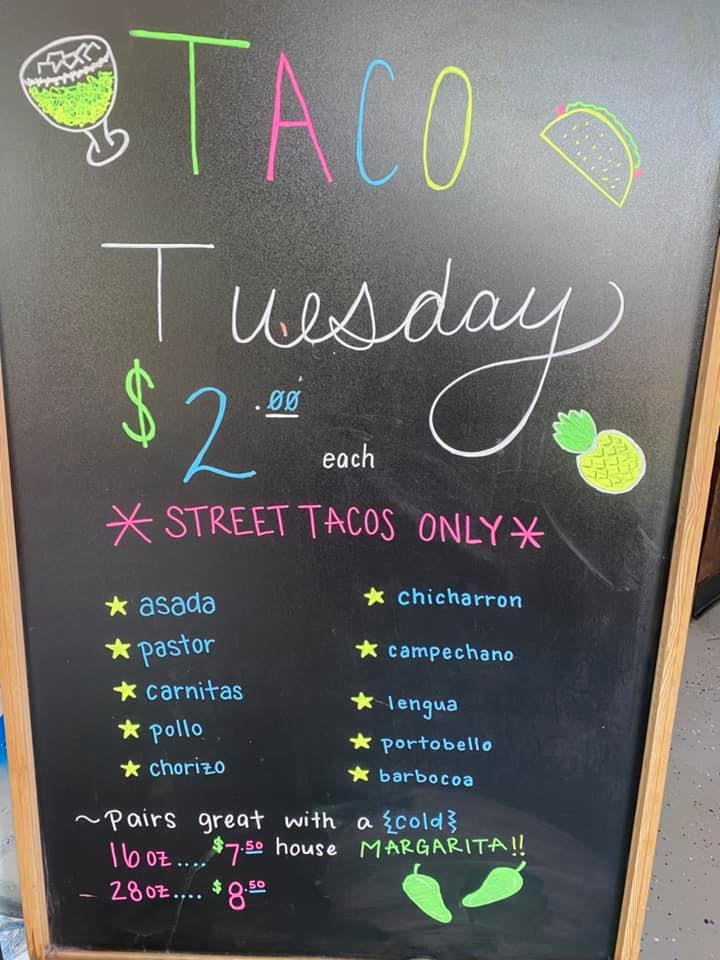 TACO
Tuesday
$2.00 each
* STREET TACOS ONLY *
★ asada
★ pastor
★ carnitas
★ pollo
★ chorizo
★ chicharron
★ campechano
★ lengua
★ portobello
★ barbocoa
~Pairs great with a {cold}
16oz.... $7.50 house MARGARITA!!
- 28oz.... $8.50